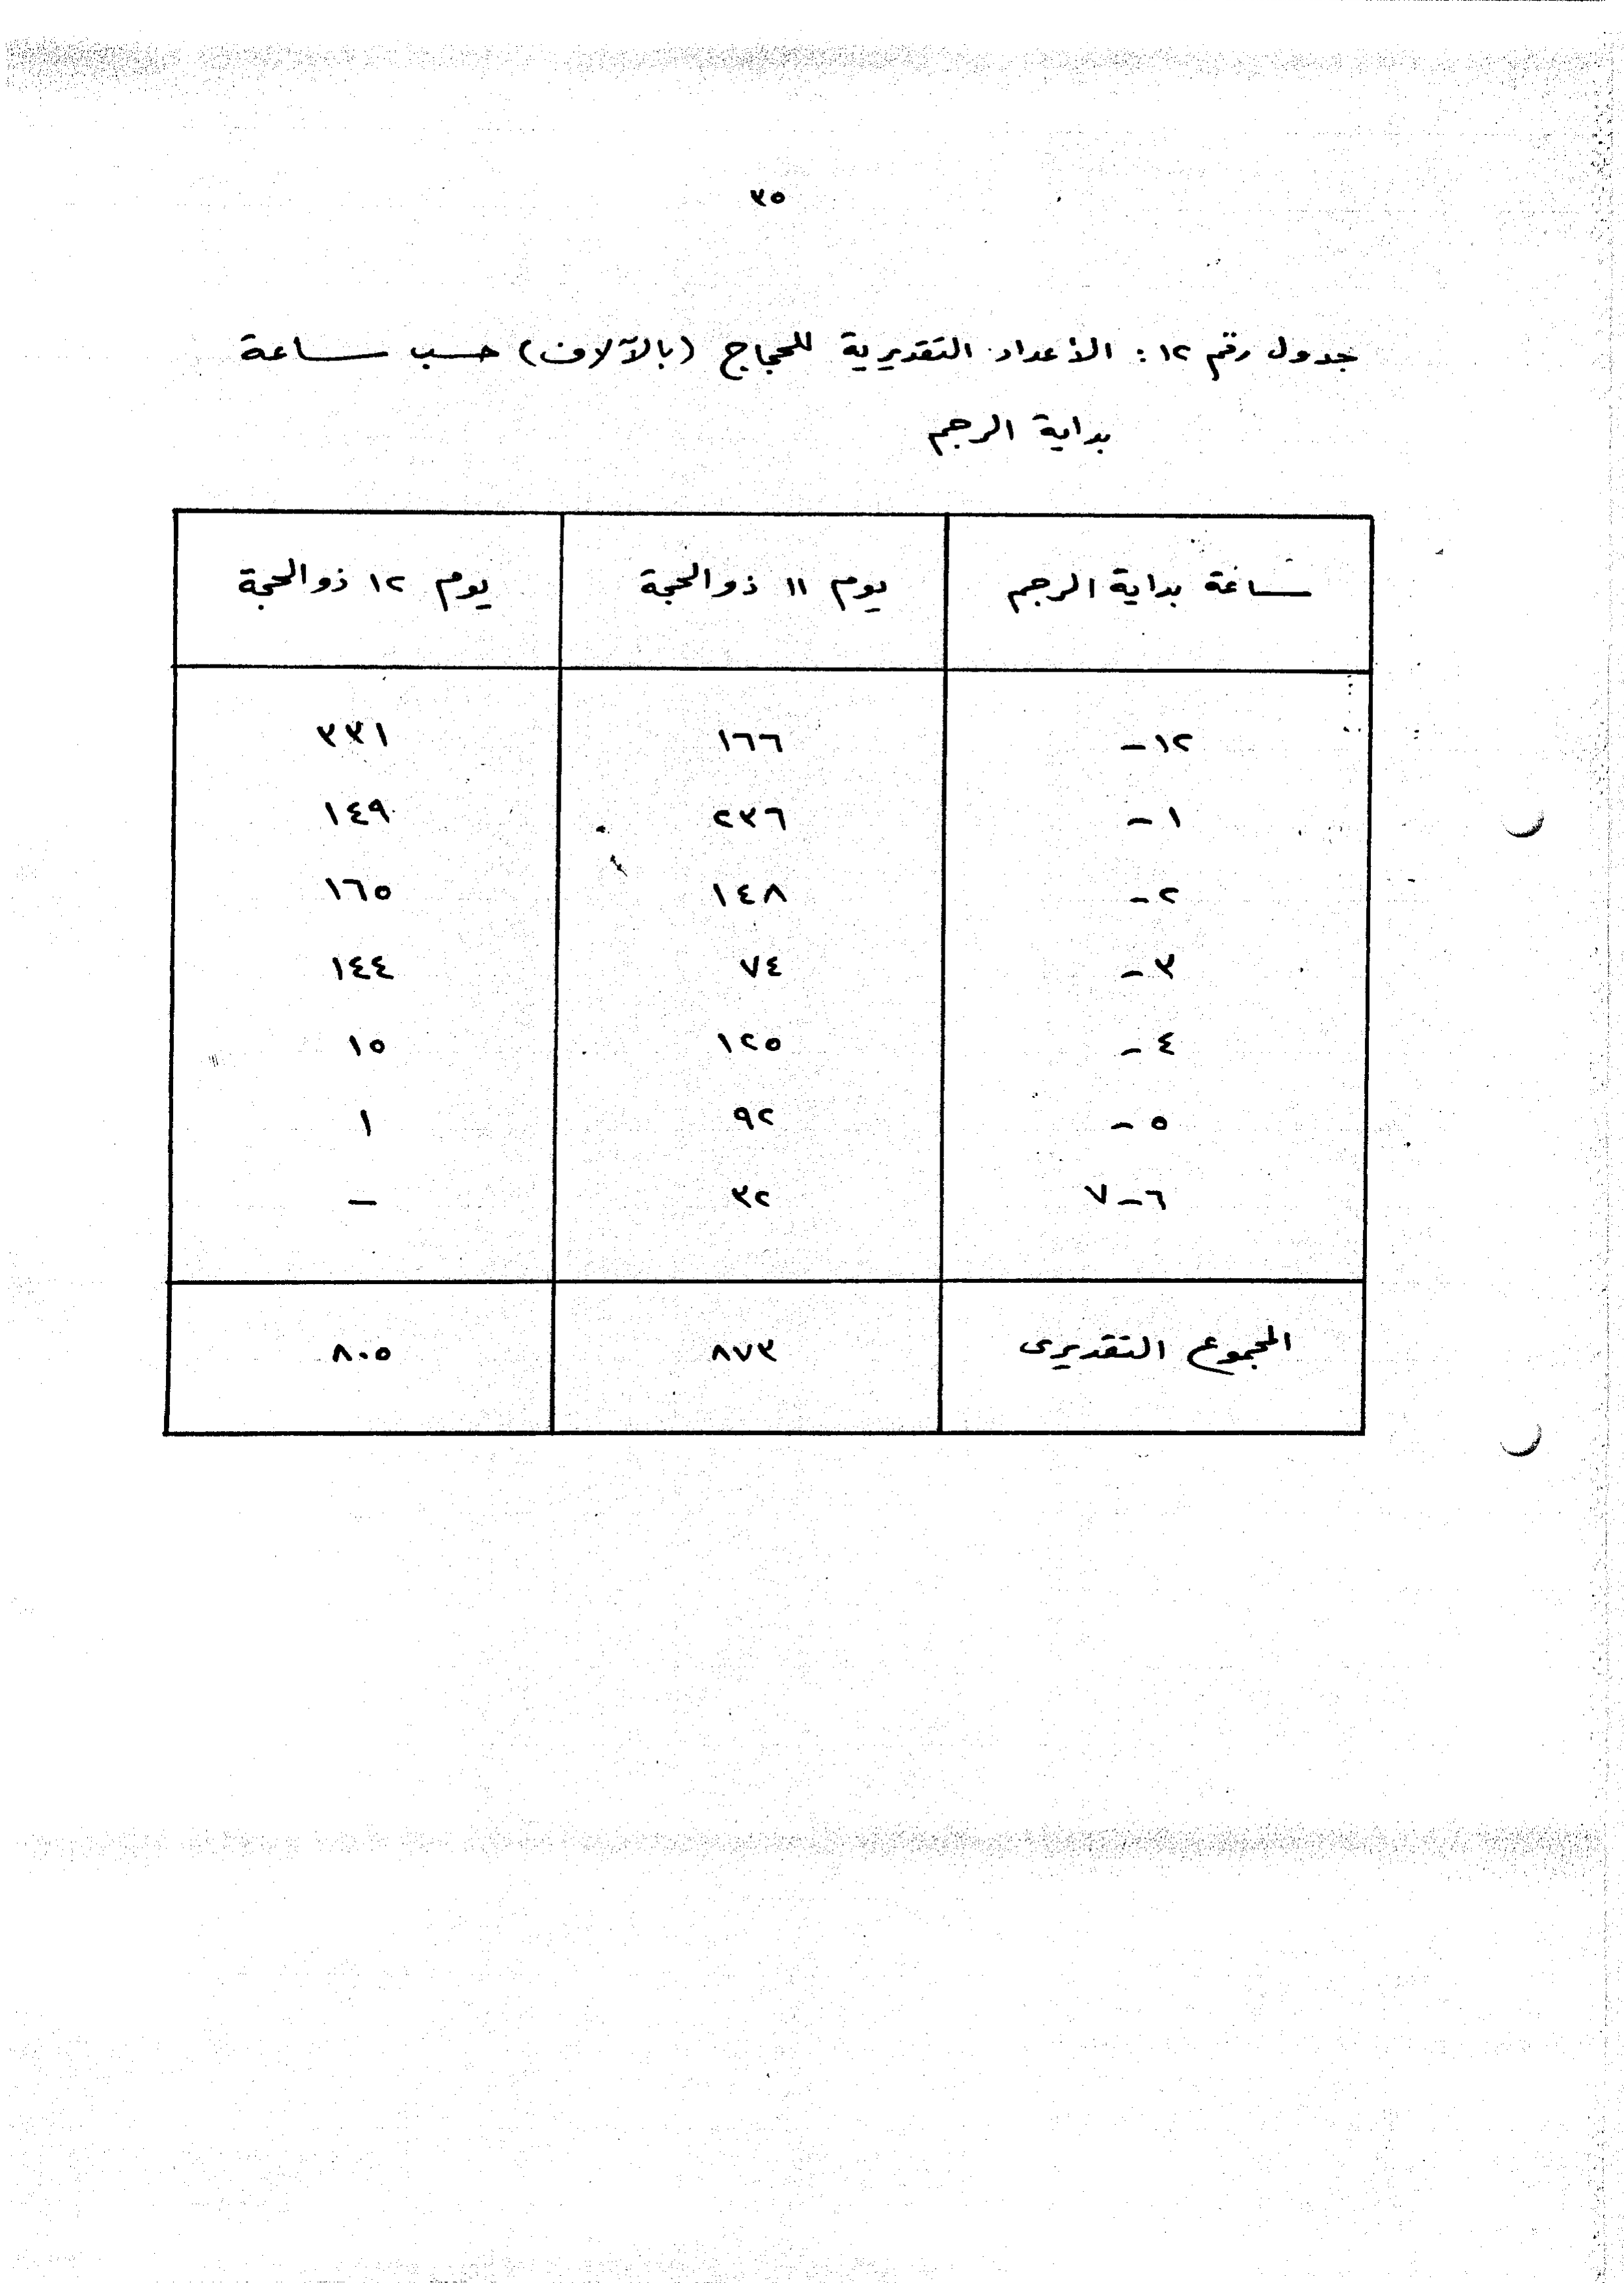 ٣٥
جدول رقم ١٢ : الأعداد التقديرية للحجاج (بالآلاف) حسب ساعة
بداية الرجم
ساعة بداية الرجم	يوم ١١ ذو الحجة	يوم ١٢ ذو الحجة
١٢ –	١٦٦	٣٣١
١ –	٢٣٦	١٤٩
٢ –	١٤٨	١٦٥
٣ –	٧٤	١٤٤
٤ –	١٢٥	١٥
٥ –	٩٢	١
٦ – ٧	٣٢	–
المجموع التقديرى	٨٧٣	٨٠٥